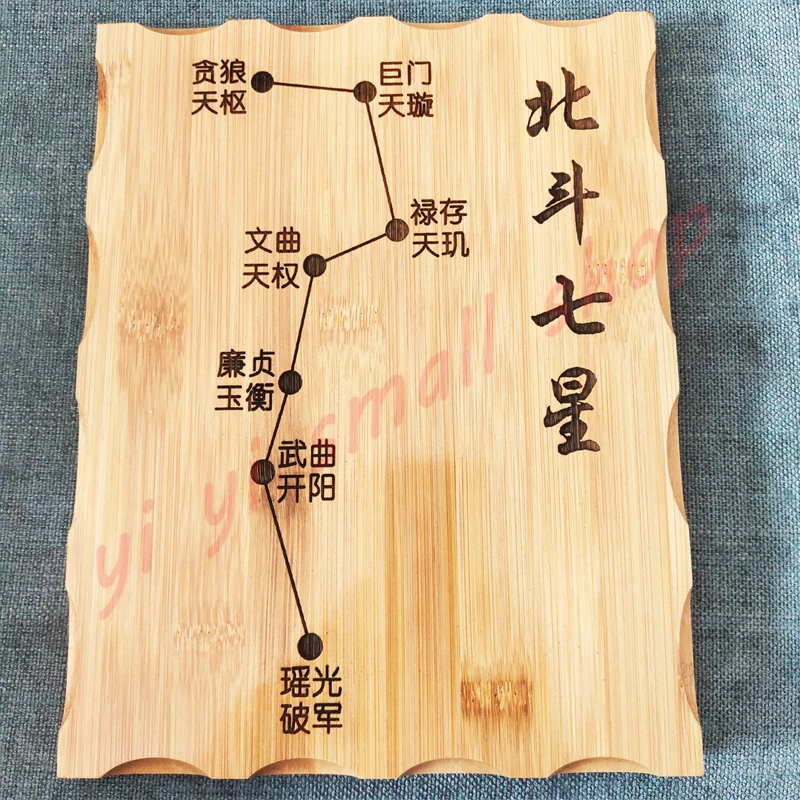 北斗七星
贪狼
天枢
巨门
天璇
禄存
天玑
文曲
天权
廉贞
玉衡
武曲
开阳
瑶光
破军
yi yi small shop